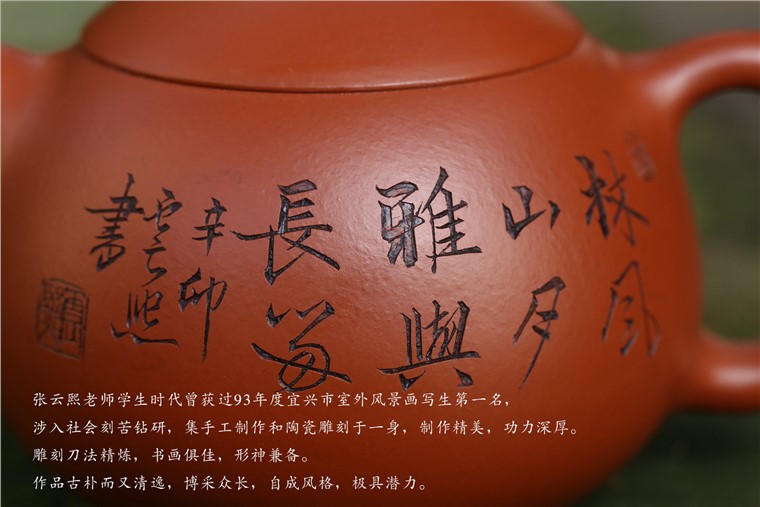 林风
山月
雅興
長留
辛卯
云熙
書
张云熙老师学生时代曾获过93年度宜兴市室外风景画写生第一名，
涉入社会刻苦钻研，集手工制作和陶瓷雕刻于一身，制作精美，功力深厚。
雕刻刀法精炼，书画俱佳，形神兼备。
作品古朴而又清逸，博采众长，自成风格，极具潜力。